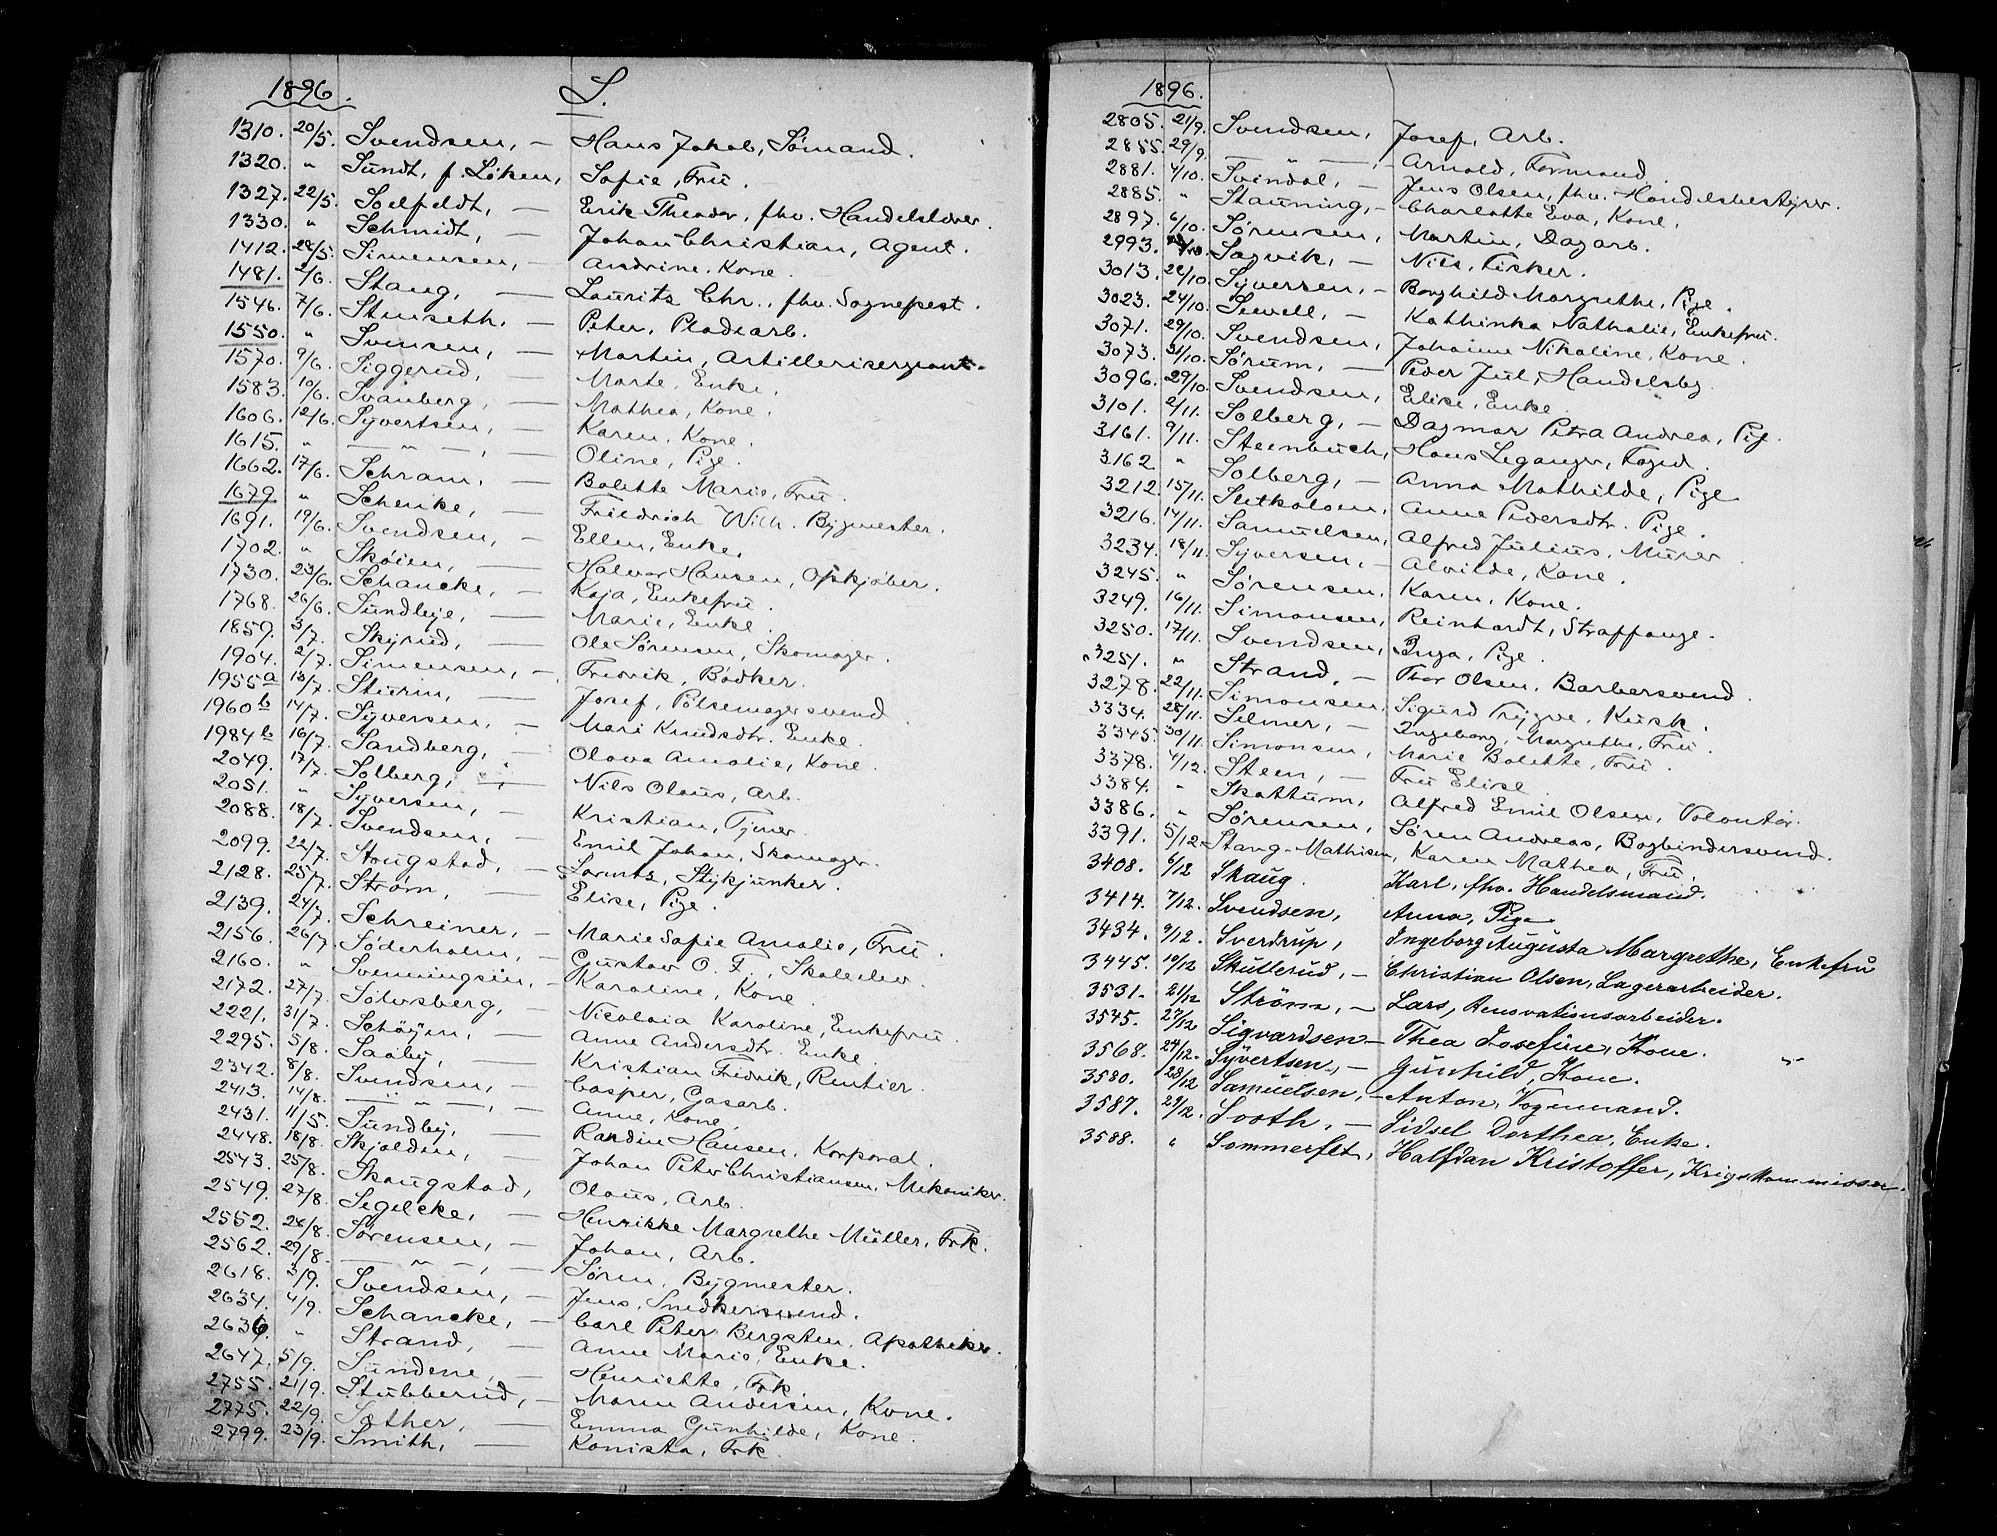 1896. S.
1310. 20/5. Svendsen, — Hans Jakob, Sömand.
1320. " Sundt, f. Löken, Sofie, Fru.
1327. 22/5. Soelfeldt, — Erik Theodor, fhv. Handelslever.
1330. " Schmidt, — Johan Christian, Agent.
1412. 28/5. Simensen, — Andrine, Kone.
1481. 2/6. Stang, — Laurits Chr., fhv. Sognepest.
1546. 7/6. Stenseth, — Peter, Pladearb.
1550. " Svensen, — Martin, Artillerisergeant.
1570. 9/6. Siggerud, — Marte, Enke.
1583. 10/6. Svanberg, — Mathea, Kone.
1606. 12/6. Syvertsen, — Karen, Kone.
1615. " — " —, — Oline, Pige.
1662. 17/6. Schram, — Bolette Marie, Fru.
1679. " Schenke, — Friedrich Wilh. Bygmester.
1691. 19/6. Svendsen, — Ellen, Enke.
1702. " Skøien, — Halvor Hansen, Opkjøber.
1730. 23/6. Schancke, — Kaja, Enkefru.
1768. 26/6. Sundbye, — Marie, Enke.
1859. 3/7. Skyrud, — Ole Sörensen, Skomager.
1904. 2/7. Simensen, — Fredrik, Bödker.
1955a 13/7. Sturm, — Josef, Pölsemagersvend.
1960b 14/7. Syversen, — Mari Knudsdtr. Enke.
1984b 16/7. Sandberg, — Olava Amalie, Kone.
2049. 17/7. Solberg, — Nils Olaus, Arb.
2051. " Syversen, — Kristian, Tjener.
2088. 18/7. Svendsen, — Emil Johan, Skomager.
2099. 22/7. Stougstad, — Lorents, Stykjunker.
2128. 25/7. Ström, — Elise, Pige.
2139. 24/7. Schreiner, — Marie Sofie Amalie, Fru.
2156. 26/7. Söderholm, — Gustav O. F., Skoleelev.
2160. " Svenningsen, — Karoline, Kone.
2172. 27/7. Sölvsberg, — Nicolaia Karoline, Enkefru.
2221. 31/7. Schöyen, — Anne Andersdtr. Enke
2295. 5/8. Saaby, — Kristian Fredrik, Rentier.
2342. 8/8. Svendsen, — Casper, Gasarb.
2413. 14/8. — " —, — Anne, Kone.
2431. 11/5. Sundby, — Randin Hansen, Korporal.
2448. 18/8. Skjolden, — Johan Peter Christiansen, Mekaniker.
2543. 25/8. Skougstad, Olaus, Arb.
2549. 27/8. Segelcke, — Henrikke Margrethe Müller, Frk.
2552. 28/8. Sörensen, — Johan, Arb.
2562. 29/8. — " —, — Sören, Bygmester.
2618. 3/9. Svendsen, — Jens, Snedkersvend.
2634. 4/9. Schancke, — Carl Peter Bergsten, Apotheker.
2636. " Strand, — Anne Marie, Enke.
2647. 5/9. Sundene, — Henriette, Frk.
2755. 21/9. Stubberud, — Maren Andersen, Kone.
2775. 22/9. Sæther, — Emma Gunhilde, Kone.
2799. 23/9. Smith, — Konista, Frk.
1896.
2805. 21/9. Svendsen, Josef, Arb.
2855. 29/9. — " —, Arnold, Formand.
2881. 4/10. Svindal, — Jens Olsen, fhv. Handelsbestyrer.
2885. " Stauning, — Charlotte Eva, Kone.
2897. 6/10. Sørensen, Martin, Dagarb.
2993. Sagvik, — Nils, Fisker.
3013. 22/10. Syversen, — Borghild Margrethe, Pige.
3023. 24/10. Sewell, — Kathinka Nathalie, Enkefru.
3071. 29/10. Svendsen, Johanne Nikoline, Kone.
3073. 31/10. Sörum, — Peder Jul, Handelsbg.
3096. 29/10. Svendsen, Elise, Enke
3101. 2/11. Solberg, — Dagmar Petra Andrea, Pige.
3161. 9/11. Steenbuch, Hans Leganger, Foged.
3162 " Solberg, — Anna Mathilde, Pige
3212. 15/11. Sletholen, Anne Pedersdtr. Pige.
3216. 14/11. Samuelsen, Alfred Julius, Murer
3234. 18/11. Syversen, — Alvilde, Kone.
3245. " Sørensen, Karen, Kone.
3249. 16/11. Simonsen, Reinhardt, Straffange.
3250. 17/11. Svendsen, Inga, Pige.
3251. " Strand, — Thor Olsen, Barbersvend.
3278. 22/11. Simonsen, Sigurd Trygve, Kusk.
3334. 28/11. Selmer, — Ingeborg Margrethe, Fru.
3345. 30/11. Simonsen, Marie Bolette, Fru.
3378. 4/12. Steen, — Fru Elise
3384. " Skattum, Alfred Emil Olsen, Volontör.
3386. " Sørensen, Sören Andreas, Bogbindersvend.
3391. 5/12. Stang-Mathisen, Karen Mathea, Fru.
3408. 6/12 Skaug. Karl, fhv. Handelsmand.
3414. 7/12. Svendsen, Anna, Pige
3434. 9/12. Sverdrup, Ingeborg Augusta Margrethe, Enkefru
3445. 10/12 Skullerud, — Christian Olsen, Lagerarbeider.
3531. 21/12 Ström, — Lars, Renovationsarbeider.
3545. 27/12 Sigvardsen — Thea Josefine, Kone.
3568. 24/12. Syvertsen, — Gunhild, Kone.
3580. 28/12 Samuelsen, — Anton, Vognmand.
3587. 29/12. Sooth, — Sidsel Dorthea, Enke.
3588. " Sommerfelt, Halfdan Kristoffer, Krigskommissær.